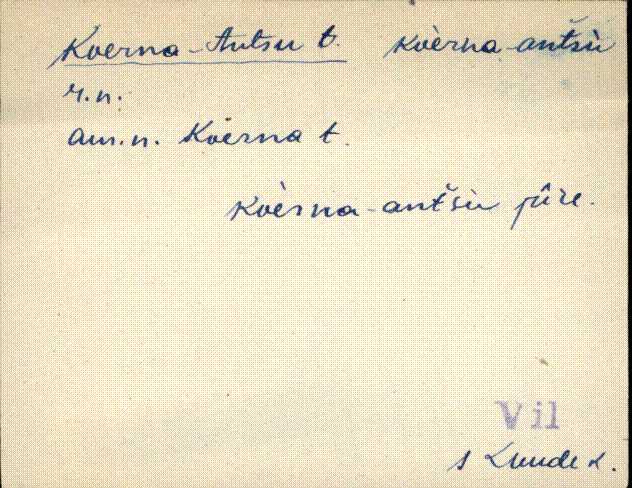 Koerna-Antsu t. kòèrna-antšù
r.n.
am.n. Koerna t.
kòèrna-antšù jûre.
Vil
s Lunde k.